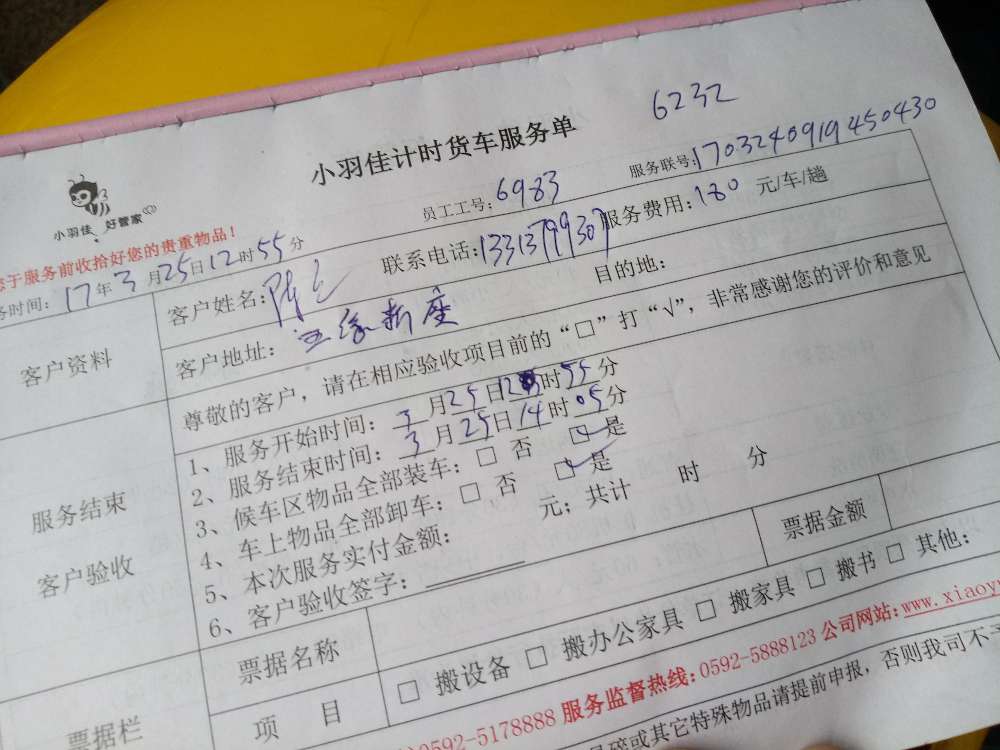 6232
小羽佳计时货车服务单
小羽佳 好管家
员工工号：6983 服务联号：170324091945043​0
您于服务前收拾好您的贵重物品！
务时间：17年3月25日12时55分
客户资料
客户姓名： 联系电话：13313799307 服务费用：180 元/车/趟
客户地址： 新座 目的地：
尊敬的客户，请在相应验收项目前的“□”打“√”，非常感谢您的评价和意见
服务结束
客户验收
1、服务开始时间：3月25日12时55分
2、服务结束时间：3月25日14时05分
3、候车区物品全部装车：□ 否 ☑ 是
4、车上物品全部卸车：□ 否 ☑ 是
5、本次服务实付金额： 元；共计 时 分
6、客户验收签字：
票据栏
票据名称 票据金额
项 目 □ 搬设备 □ 搬办公家具 □ 搬家具 □ 搬书 □ 其他：
0592-5178888 服务监督热线：0592-5888123 公司网站：www.xiaoy
碎或其它特殊物品请提前申报，否则我司不